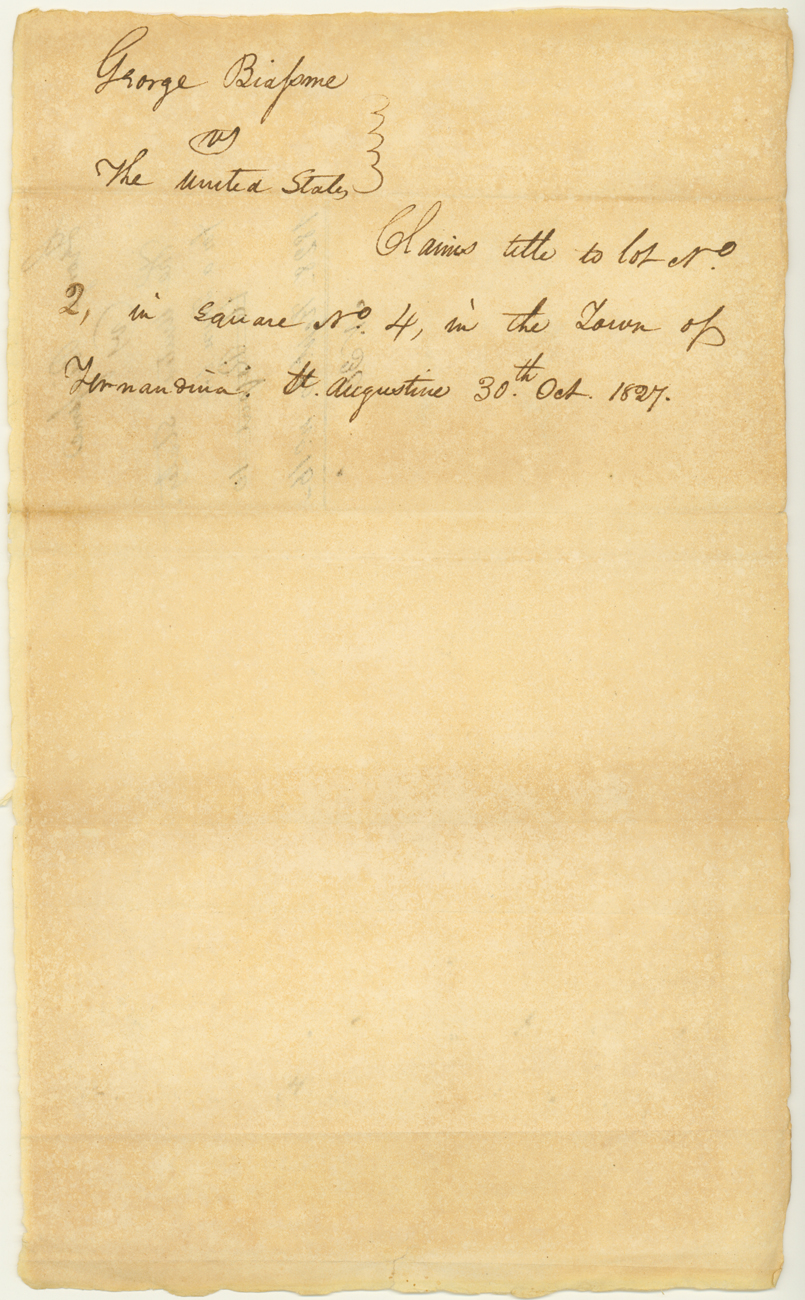 George Biassme
vs
The United States
Claims title to lot No.
2, in Square No. 4, in the Town of
Fernandina. St. Augustine 30.th Oct. 1827.